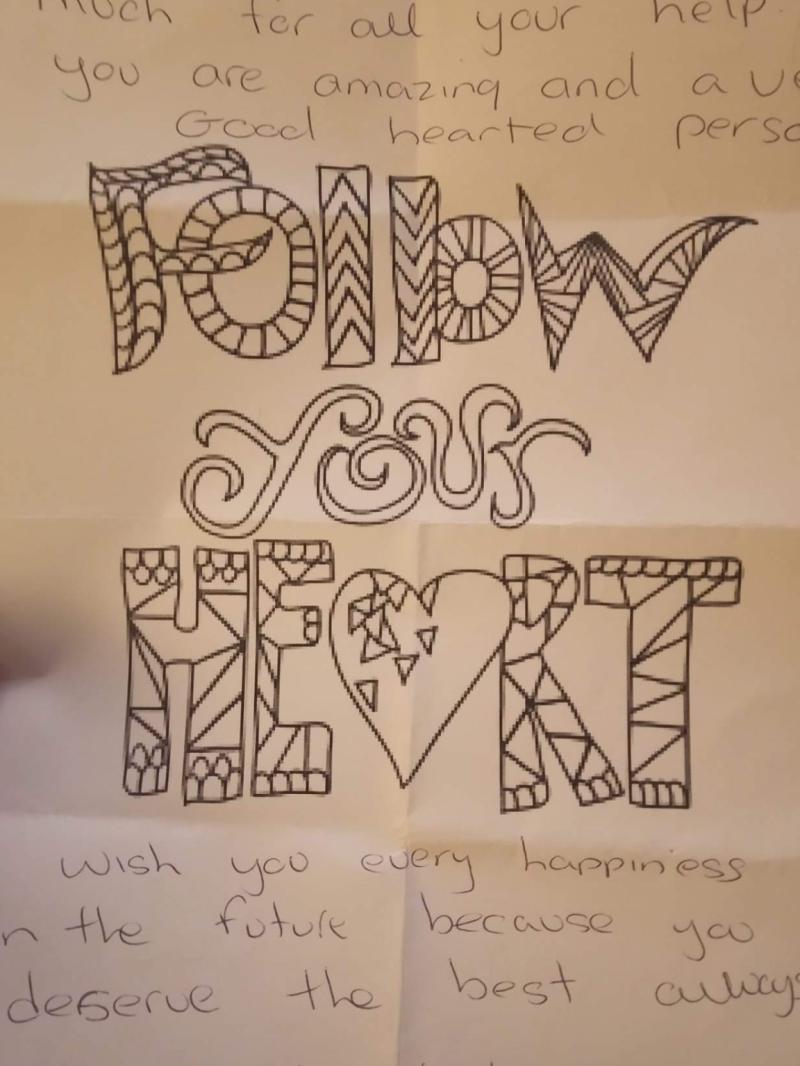 much for all your help.
you are amazing and a ve
Good hearted perso
Follow
your
HEART
wish you every happiness
n the future because you
deserve the best always